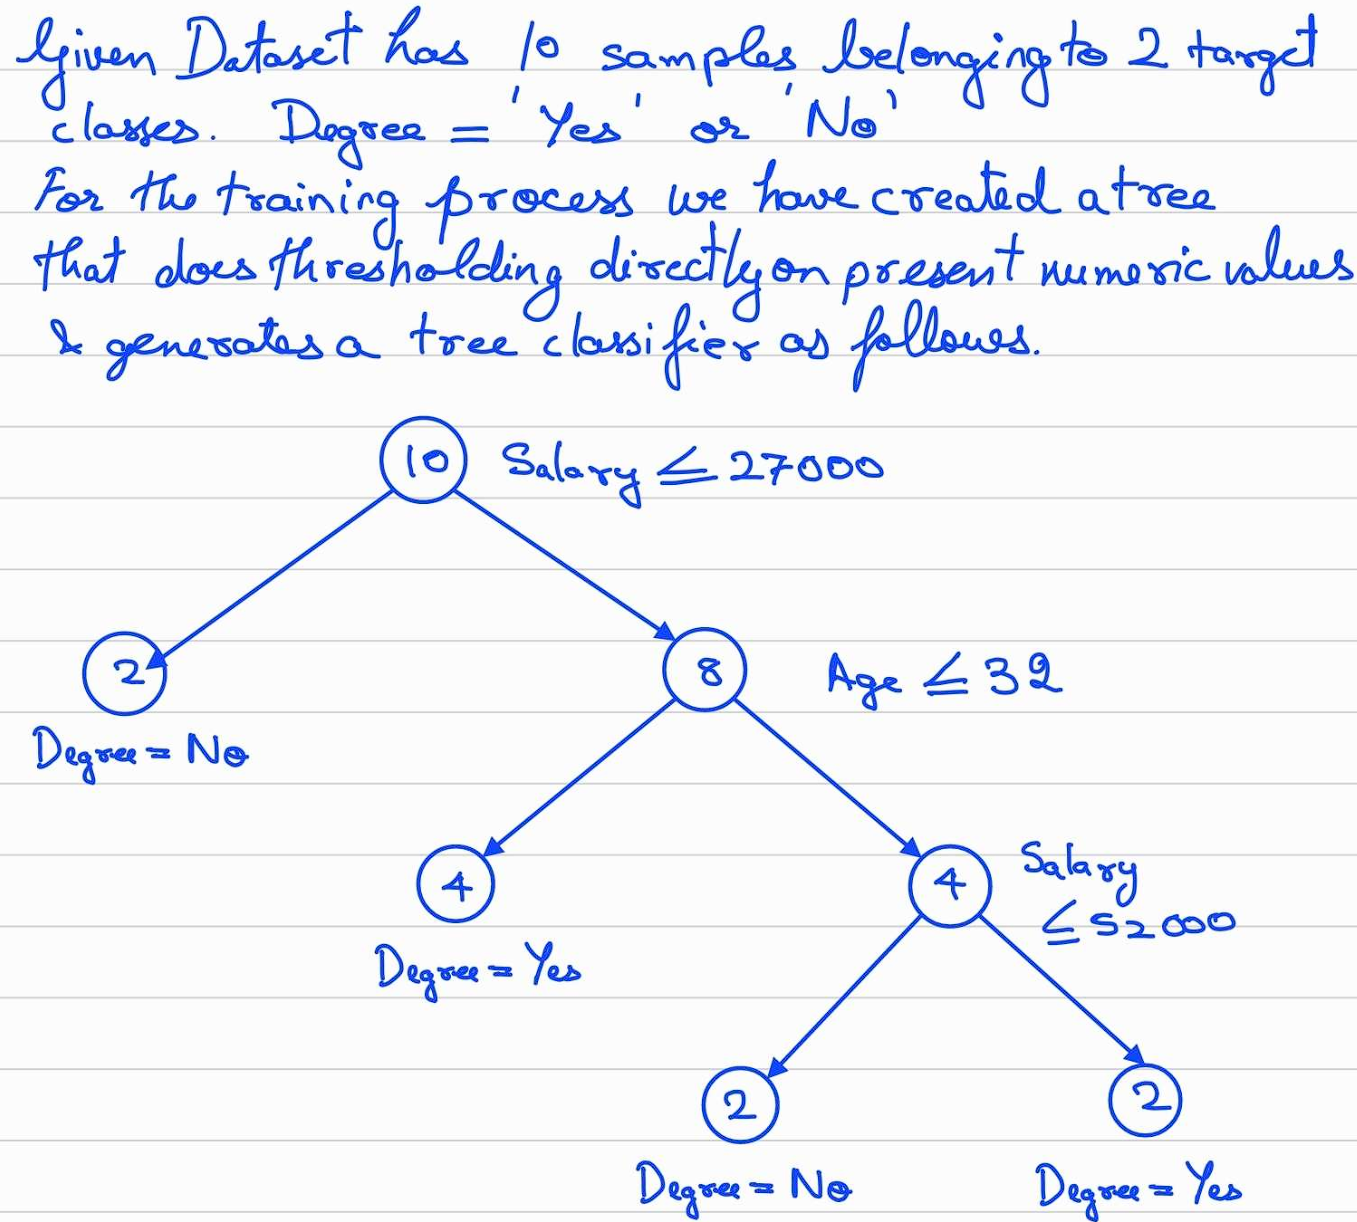 Given Dataset has 10 samples belonging to 2 target
classes. Degree = 'Yes' or 'No'
For the training process we have created a tree
that does thresholding directly on present numeric values
& generates a tree classifier as follows.
10 Salary ≤ 27000
2
8
Age ≤ 32
Degree = No
4
4
Salary
≤ 52000
Degree = Yes
2
2
Degree = No
Degree = Yes